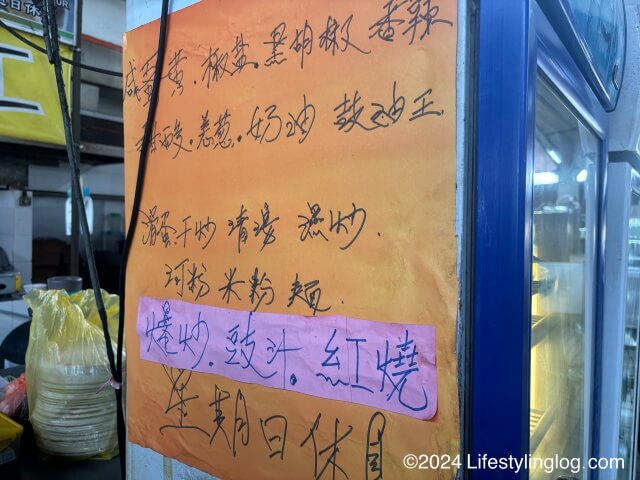 日休
咸蛋黄.椒盐.黑胡椒 香辣
甜酸.姜葱.奶油 豉油王.
滑蛋 干炒 清 濕炒.
河粉 米粉 麵.
爆炒.豉汁.紅燒
星期日休
©2024 Lifestylinglog.com